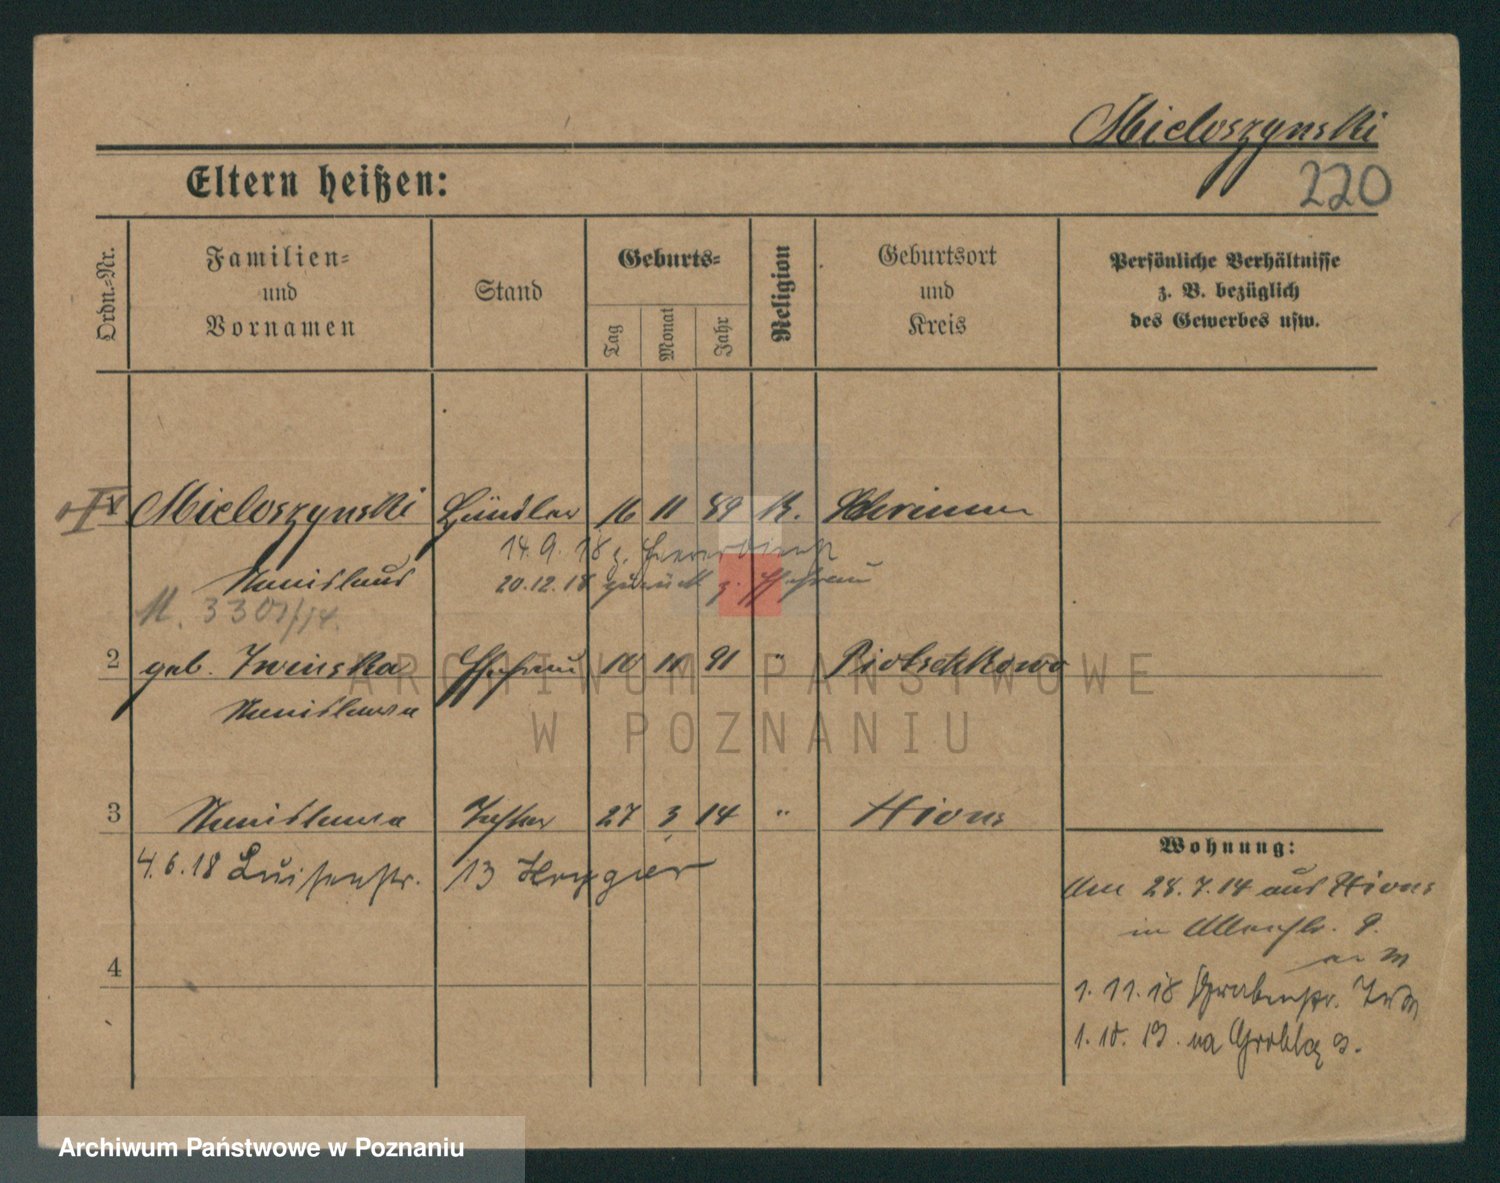 Mieloszynski
220
Eltern heißen:
Ordn.-Nr.
Familien-
und
Vornamen
Stand
Geburts-
Tag
Monat
Jahr
Religion
Geburtsort
und
Kreis
Persönliche Verhältnisse
z. B. bezüglich
des Gewerbes usw.
Mieloszynski Händler 16 11 89 K. Schrimm
14.9.18 z. Heeresdienst
Stanislaus 20.12.18 zurück z. Ehefrau
M. 3307/14.
2 geb. Ehefrau 10 11 91 " Piotrkowo
Stanislawa
3 Stanislawa Tochter 27 3 14 " Xions
4.6.18 Luisenstr. 13
4
Wohnung:
Am 28.7.14 aus Xions
in 9.
1.11.18 Grabenstr.
1.10.19. na Groblą 9.
ARCHIWUM PAŃSTWOWE
W POZNANIU
Archiwum Państwowe w Poznaniu